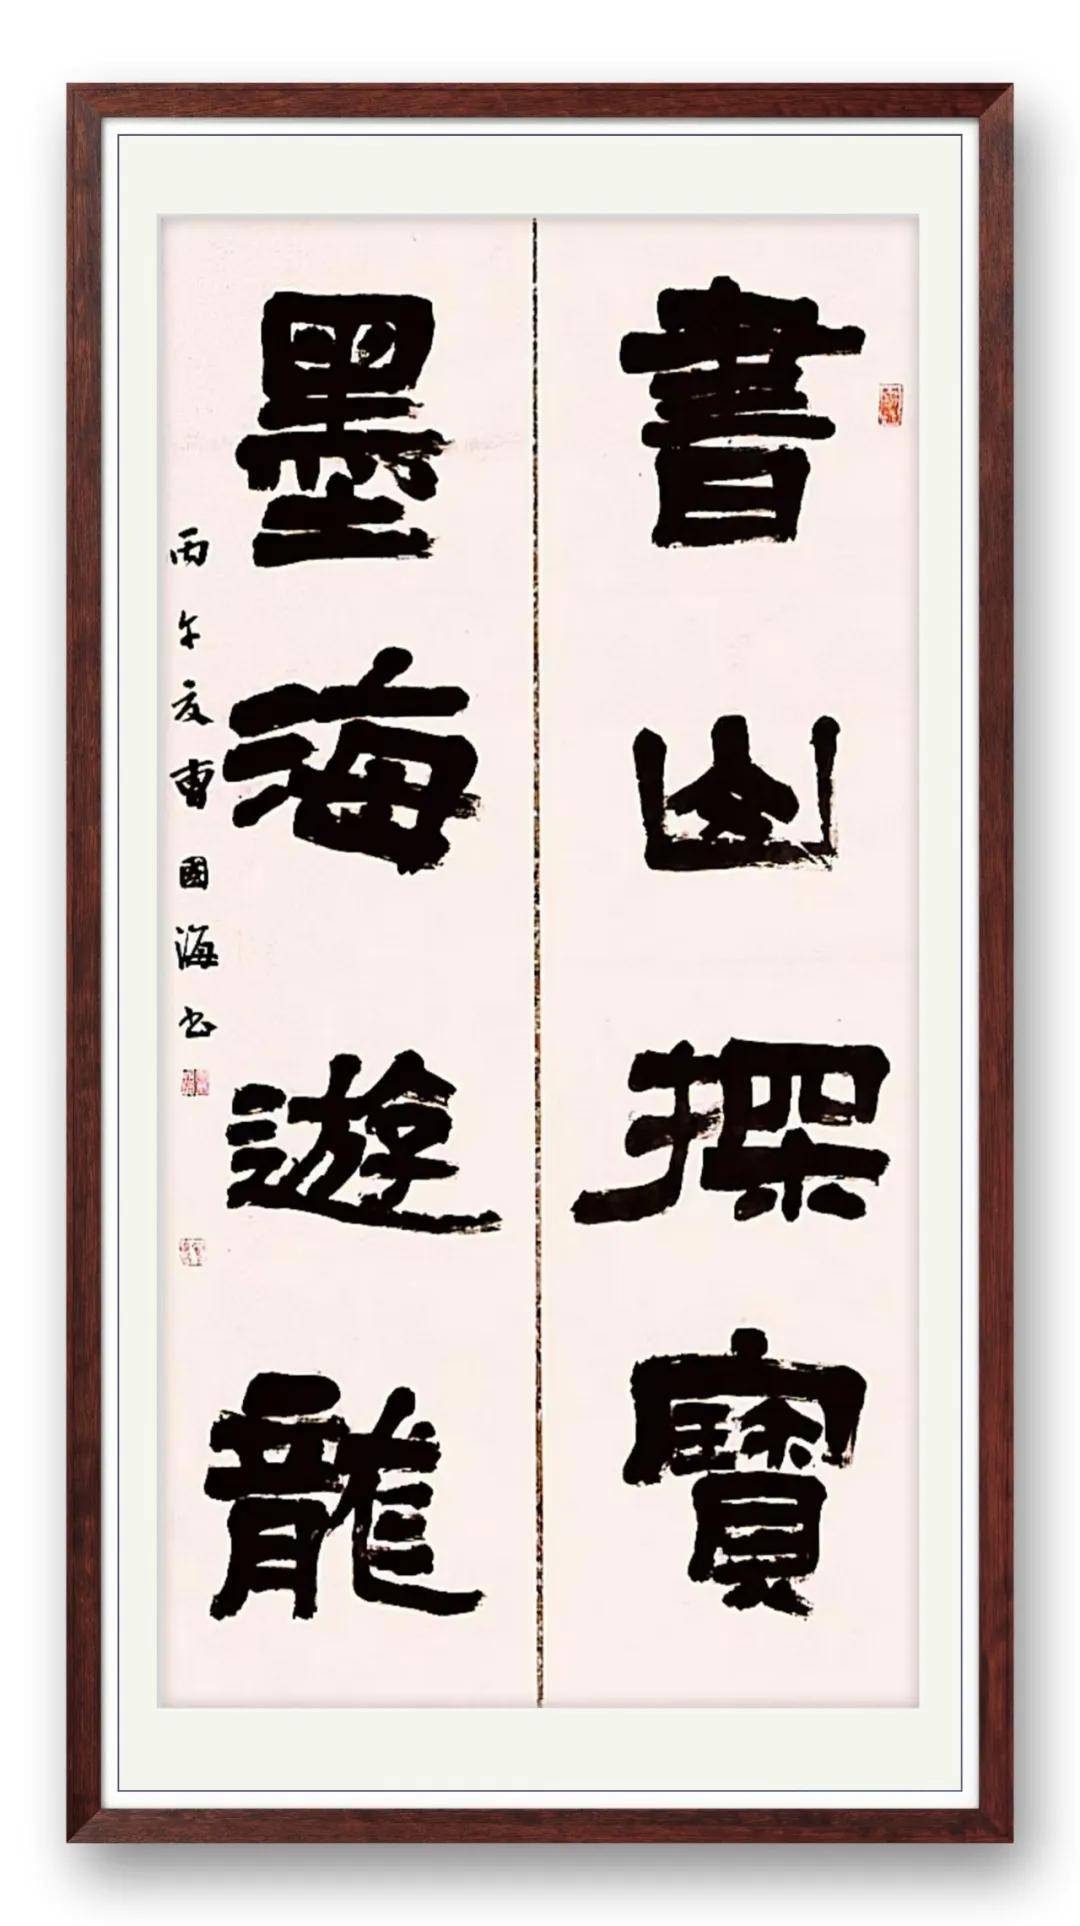 書山探寶
墨海遊龍
丙午夏曹國海书